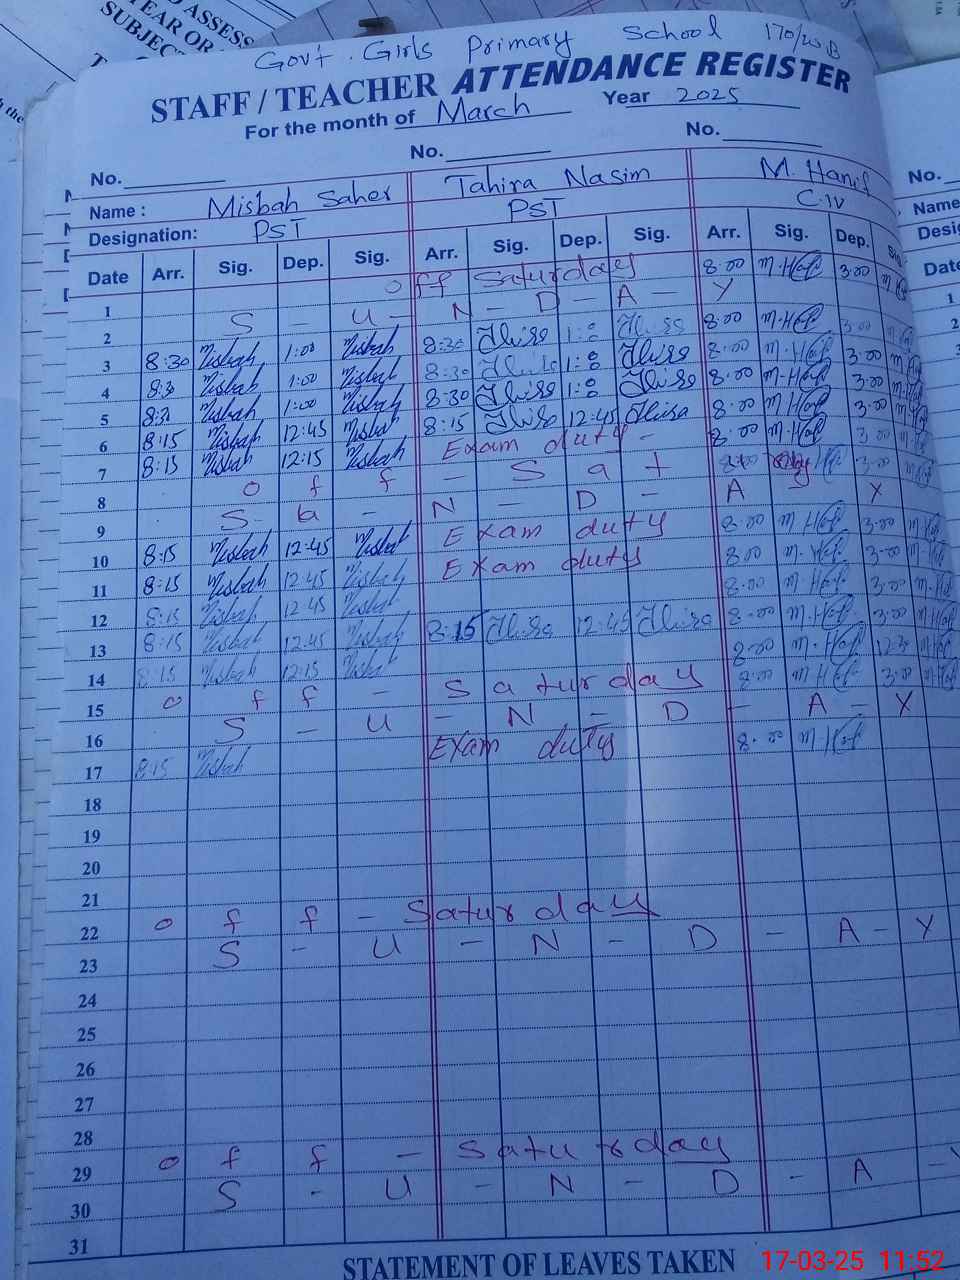 D ASSESS
YEAR OR
SUBJEC
h the
Govt. Girls Primary School 170/W.B
STAFF / TEACHER ATTENDANCE REGISTER
For the month of March Year 2025
No. No. No. No.
Name : Misbah Saher Tahira Nasim M. Hanif Name
Designation: PST PST C.IV Desig
Date Arr. Sig. Dep. Sig. Arr. Sig. Dep. Sig. Arr. Sig. Dep. Sig. Date
1 off Saturday 8:00 3:00
2 S - U - N - D - A - Y
3 8:30 Misbah 1:00 Misbah 8:30 1:0 8:00 3:00
4 8:30 Misbah 1:00 Misbah 8:30 1:0 8:00 3:00
5 8:30 Misbah 1:00 Misbah 8:30 1:0 8:00 3:00
6 8:15 Misbah 12:45 Misbah 8:15 12:45 8:00 3:00
7 8:15 Misbah 12:15 Misbah Exam duty - 8:00 3:00
8 o f f - S a t
9 S - U - N - D - A - Y
10 8:15 Misbah 12:45 Misbah Exam duty 8:00 3:00
11 8:15 Misbah 12:45 Misbah Exam duty 8:00 3:00
12 8:15 Misbah 12:45 Misbah 8:00 3:00
13 8:15 Misbah 12:45 Misbah 8:15 12:45 8:00 3:00
14 8:15 Misbah 12:15 Misbah 8:00 12:30
15 o f f - Saturday 8:00 3:00
16 S - U - N - D - A - Y
17 8:15 Misbah Exam duty 8:00
18
19
20
21
22 o f f - Saturday
23 S - U - N - D - A - Y
24
25
26
27
28
29 o f f - Saturday
30 S - U - N - D - A - Y
31
STATEMENT OF LEAVES TAKEN
17-03-25 11:52